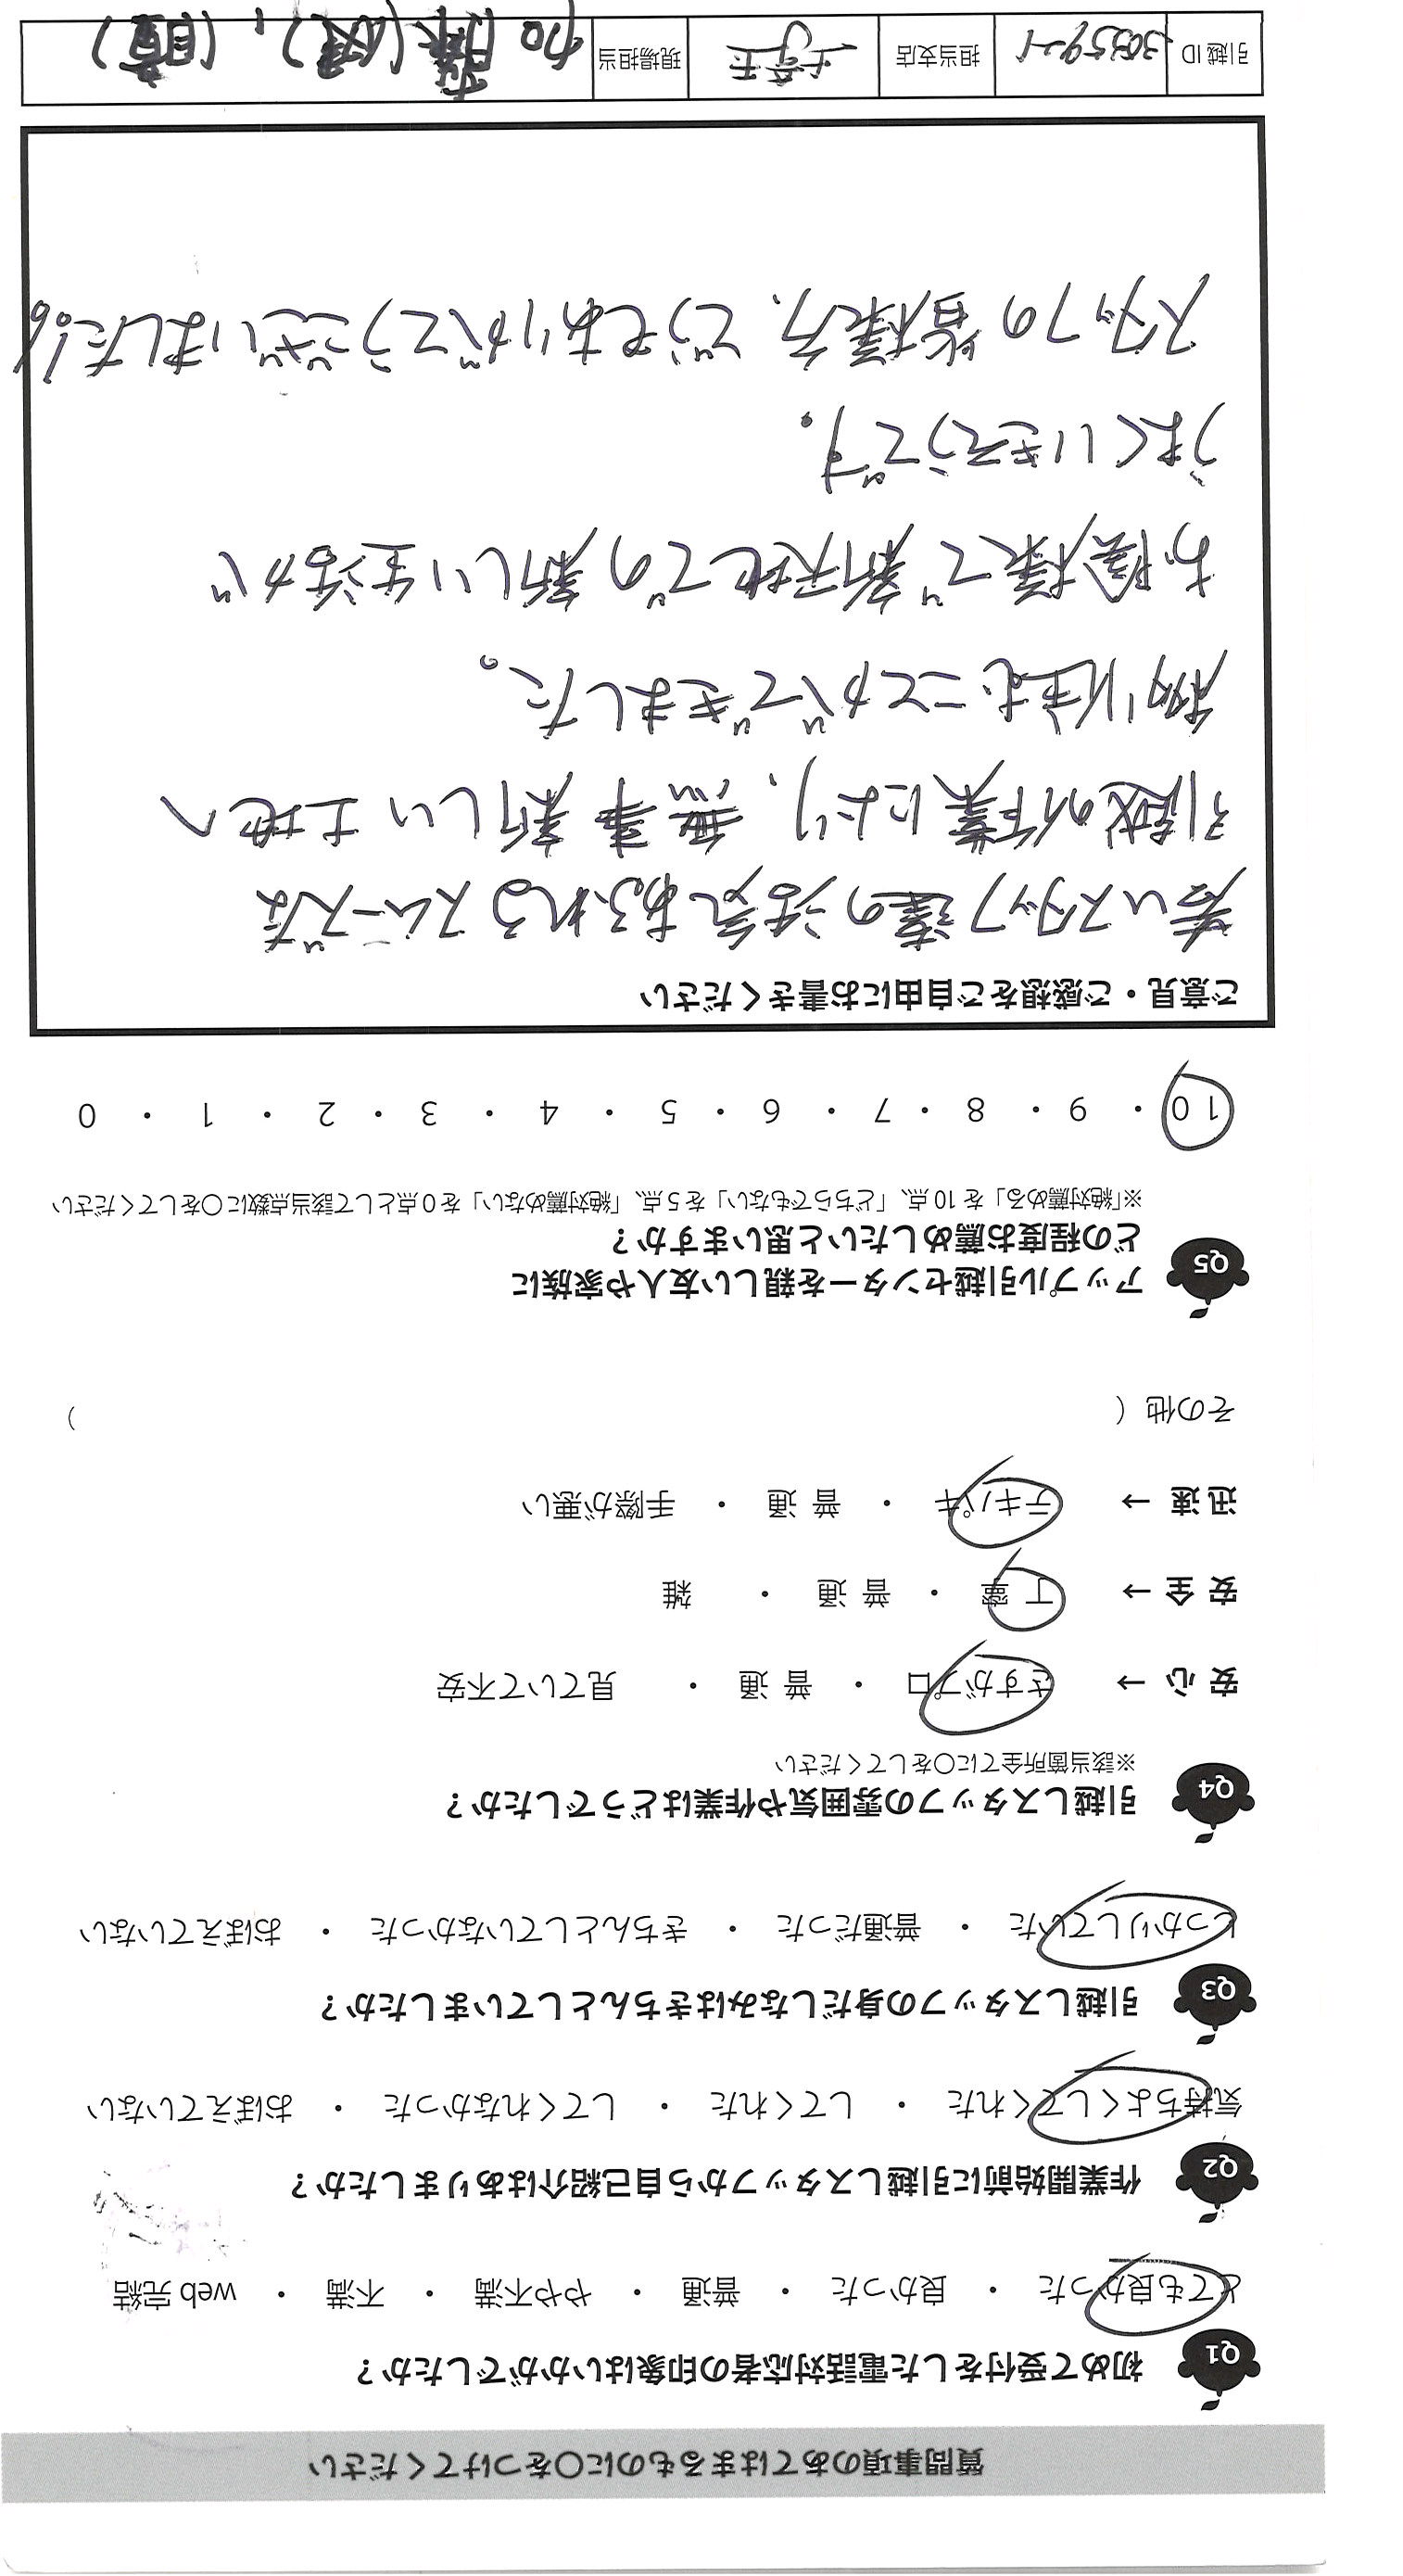 質問事項のあてはまるものに○をつけてください
Q1 初めて受付をした電話対応者の印象はいかがでしたか？
とても良かった ・ 良かった ・ 普通 ・ やや不満 ・ 不満 ・ web 完結
Q2 作業開始前に引越しスタッフから自己紹介はありましたか？
気持ちよくしてくれた ・ してくれた ・ してくれなかった ・ おぼえていない
Q3 引越しスタッフの身だしなみはきちんとしていましたか？
しっかりしていた ・ 普通だった ・ きちんとしていなかった ・ おぼえていない
Q4 引越しスタッフの雰囲気や作業はどうでしたか？
※該当箇所全てに○をしてください
安 心 → さすがプロ ・ 普 通 ・ 見ていて不安
安 全 → 丁 寧 ・ 普 通 ・ 雑
迅 速 → テキパキ ・ 普 通 ・ 手際が悪い
その他（ ）
Q5 アップル引越センターを親しい友人や家族に
どの程度お薦めしたいと思いますか？
※「絶対薦める」を 10 点、「どちらでもない」を 5 点、「絶対薦めない」を 0 点として該当点数に○をしてください
10 ・ 9 ・ 8 ・ 7 ・ 6 ・ 5 ・ 4 ・ 3 ・ 2 ・ 1 ・ 0
ご意見・ご感想をご自由にお書きください
若いスタッフ達の活気あふれるスムーズな
引越の作業により、無事新しい土地へ
移り住むことができました。
お陰様で新天地での新しい生活が
うまくいきそうです。
スタッフの皆様方、どうもありがとうございました！。
引越 ID 担当支店 現場担当 加藤